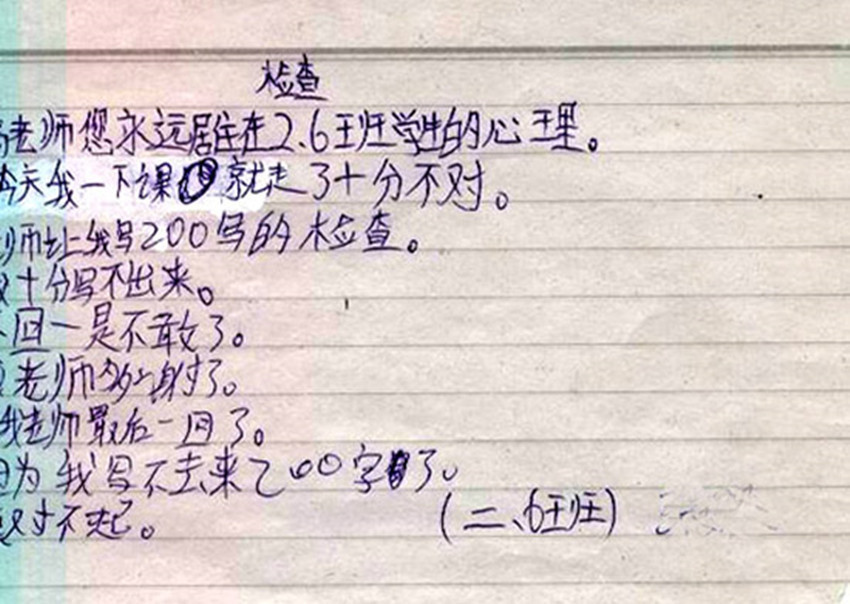 检查
老师您永远居住在2.6班学生的心理。
今天我一下课就走了十分不对。
师让我写200写的检查。
十分写不出来。
回一是不敢了。
老师多射了。
我老师最后一回了。
因为我写不去来200字了。
对不起。
(二、6班)